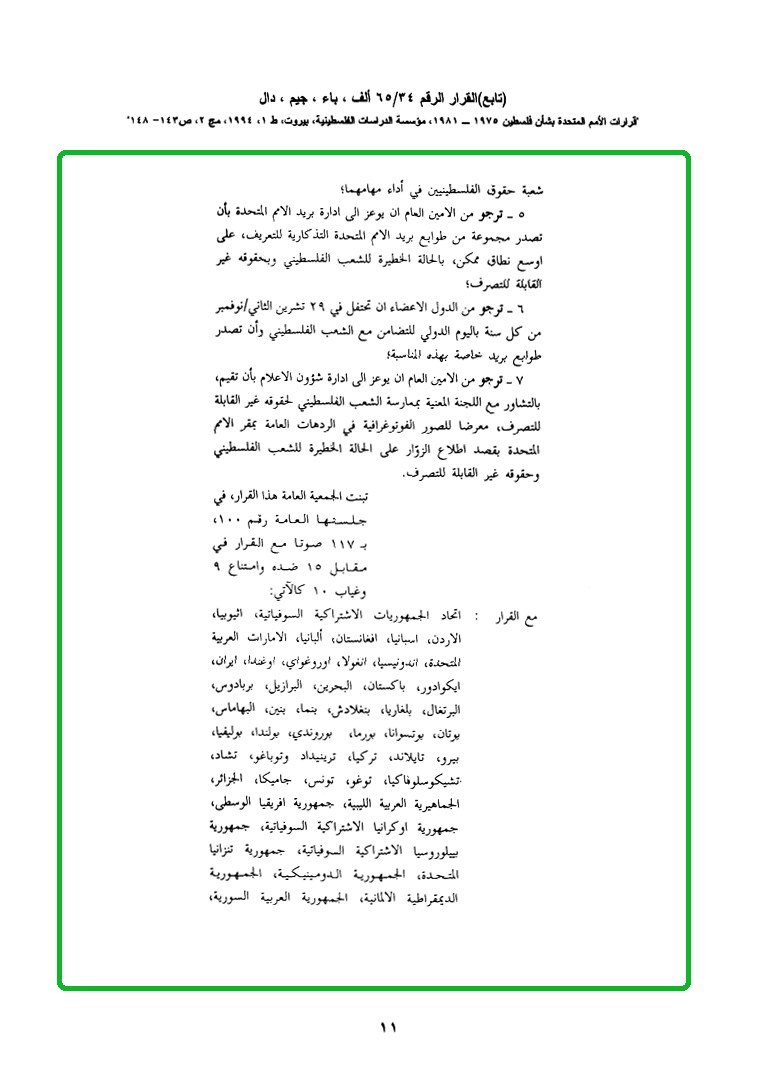 (تابع)القرار الرقم ٦٥/٣٤ ألف ، باء ، جيم ، دال
"قرارات الأمم المتحدة بشأن فلسطين ١٩٧٥ ــ ١٩٨١، مؤسسة الدراسات الفلسطينية، بيروت، ط ١، ١٩٩٤، مج ٢، ص١٤٣- ١٤٨"
شعبة حقوق الفلسطينيين في أداء مهامهما؛
٥ ـ ترجو من الامين العام ان يوعز الى ادارة بريد الامم المتحدة بأن
تصدر مجموعة من طوابع بريد الامم المتحدة التذكارية للتعريف، على
اوسع نطاق ممكن، بالحالة الخطيرة للشعب الفلسطيني وبحقوقه غير
القابلة للتصرف؛
٦ ـ ترجو من الدول الاعضاء ان تحتفل في ٢٩ تشرين الثاني/نوفمبر
من كل سنة باليوم الدولي للتضامن مع الشعب الفلسطيني وأن تصدر
طوابع بريد خاصة بهذه المناسبة؛
٧ ـ ترجو من الامين العام ان يوعز الى ادارة شؤون الاعلام بأن تقيم،
بالتشاور مع اللجنة المعنية بممارسة الشعب الفلسطيني لحقوقه غير القابلة
للتصرف، معرضا للصور الفوتوغرافية في الردهات العامة بمقر الامم
المتحدة بقصد اطلاع الزوّار على الحالة الخطيرة للشعب الفلسطيني
وحقوقه غير القابلة للتصرف.
تبنت الجمعية العامة هذا القرار، في
جلستها العامة رقم ١٠٠،
بـ ١١٧ صوتا مع القرار في
مقابل ١٥ ضده وامتناع ٩
وغياب ١٠ كالآتي:
مع القرار : اتحاد الجمهوريات الاشتراكية السوفياتية، اثيوبيا،
الاردن، اسبانيا، افغانستان، ألبانيا، الامارات العربية
المتحدة، اندونيسيا، انغولا، اوروغواي، اوغندا، ايران،
ايكوادور، باكستان، البحرين، البرازيل، بربادوس،
البرتغال، بلغاريا، بنغلادش، بنما، بنين، البهاماس،
بوتان، بوتسوانا، بورما، بوروندي، بولندا، بوليفيا،
بيرو، تايلاند، تركيا، ترينيداد وتوباغو، تشاد،
تشيكوسلوفاكيا، توغو، تونس، جاميكا، الجزائر،
الجماهيرية العربية الليبية، جمهورية افريقيا الوسطى،
جمهورية اوكرانيا الاشتراكية السوفياتية، جمهورية
بييلوروسيا الاشتراكية السوفياتية، جمهورية تنزانيا
المتحدة، الجمهورية الدومينيكية، الجمهورية
الديمقراطية الالمانية، الجمهورية العربية السورية،
١١